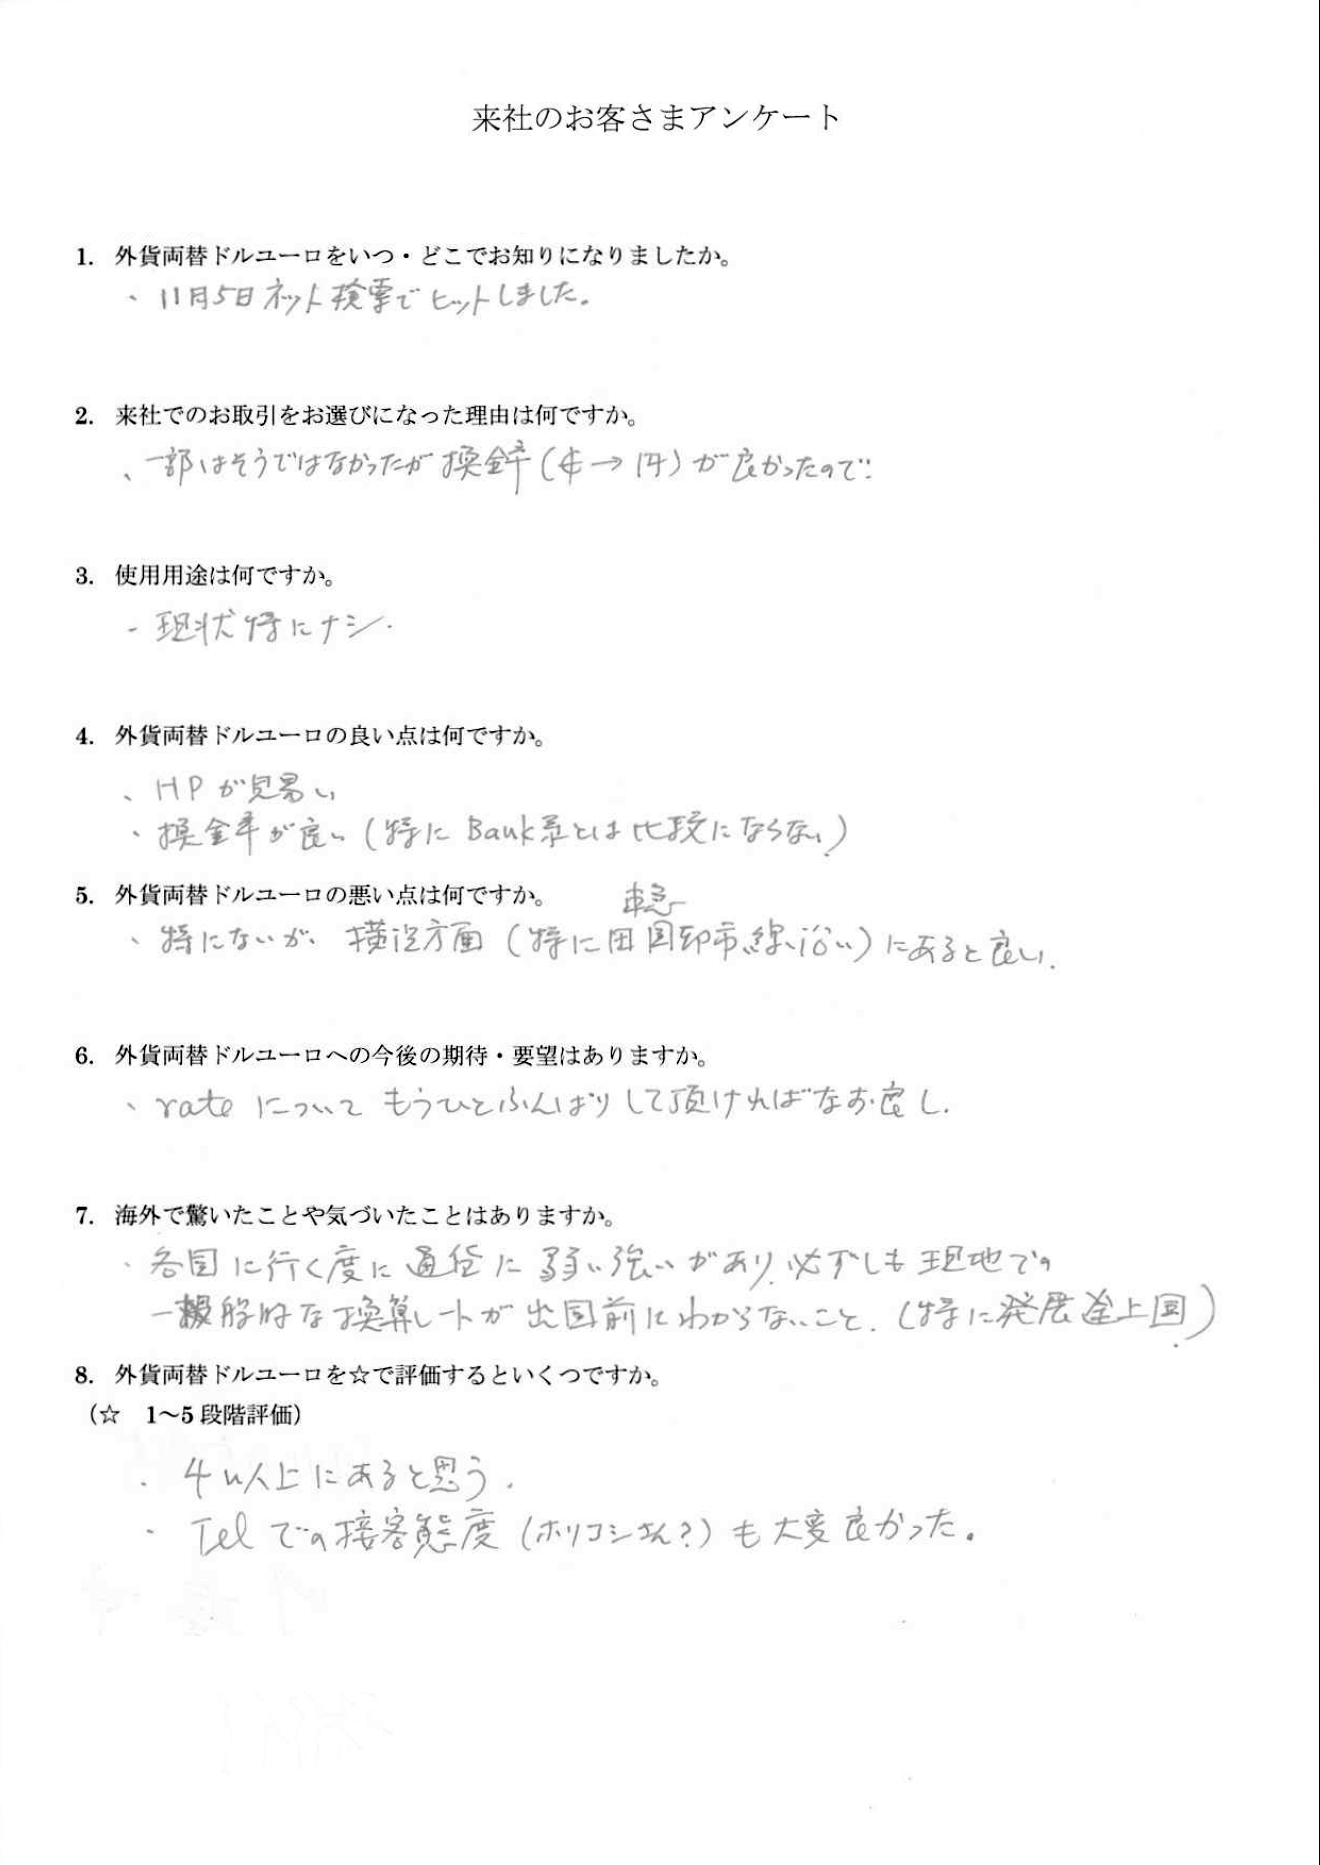 来社のお客さまアンケート
1. 外貨両替ドルユーロをいつ・どこでお知りになりましたか。
・11月5日ネット検索でヒットしました。
2. 来社でのお取引をお選びになった理由は何ですか。
・一部はそうではなかったが換金率(＄→円)が良かったので
3. 使用用途は何ですか。
- 現状特にナシ.
4. 外貨両替ドルユーロの良い点は何ですか。
・HPが見易い
・換金率が良い(特にBank系とは比較にならない)
5. 外貨両替ドルユーロの悪い点は何ですか。
東急
・特にないが、横浜方面(特に田園都市線沿い)にあると良い.
6. 外貨両替ドルユーロへの今後の期待・要望はありますか。
・rateについてもうひとふんばりして頂ければなお良し.
7. 海外で驚いたことや気づいたことはありますか。
・各国に行く度に通貨に弱い強いがあり、必ずしも現地での
一般的な換算レートが出国前にわからないこと.(特に発展途上国)
8. 外貨両替ドルユーロを☆で評価するといくつですか。
（☆　1〜5 段階評価）
・4以上にあると思う.
・Telでの接客態度(ホリコシさん?)も大変良かった。